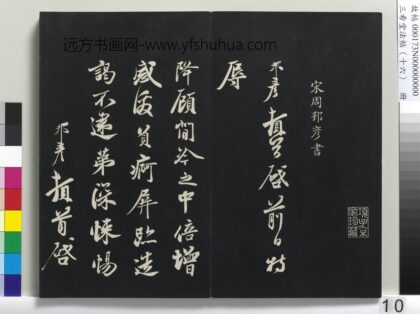 宋周邦彦書
邦彦頓首啓前日特
辱
降顧閒冷之中倍增
感佩負痾屏跡造
謁不遑第深悚惕
邦彦頓首啓
远方书画网-www.yfshuhua.com
故帖 000173N000000000
三希堂法帖（十六） 册
10